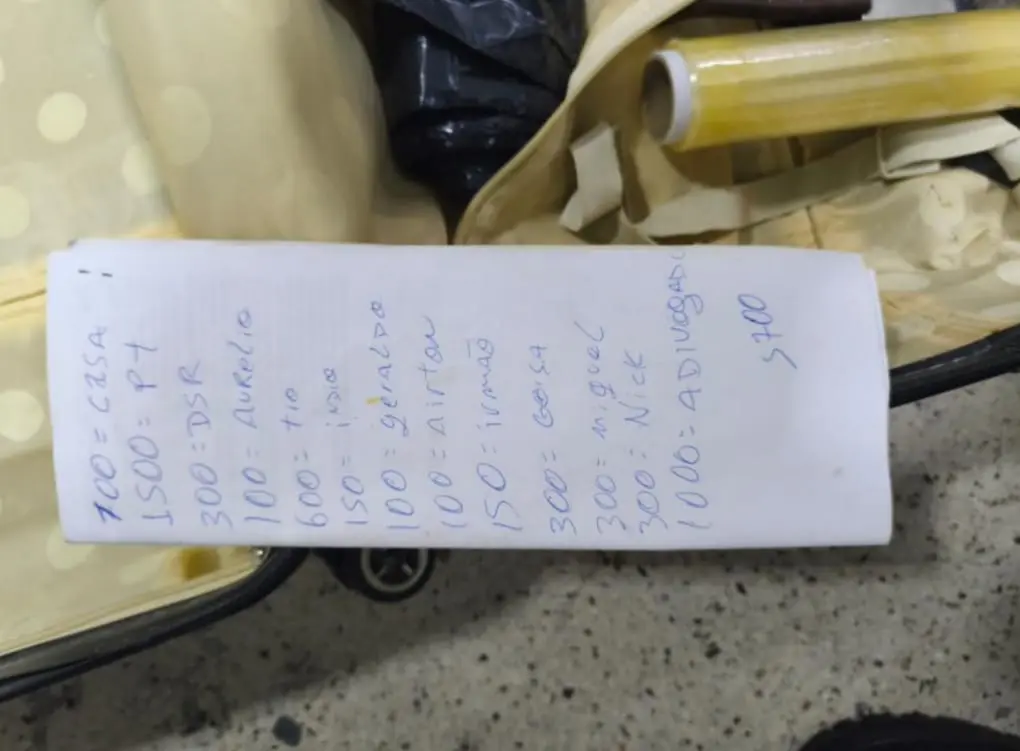 700 = CASA
1500 = PT
300 = DSR
100 = AURELIO
600 = tio
150 = iNDIO
100 = gERALDO
100 = AiRTON
150 = irmão
300 = GEISA
300 = miguel
300 = NiCK
1000 = ADIVOGADO
5700